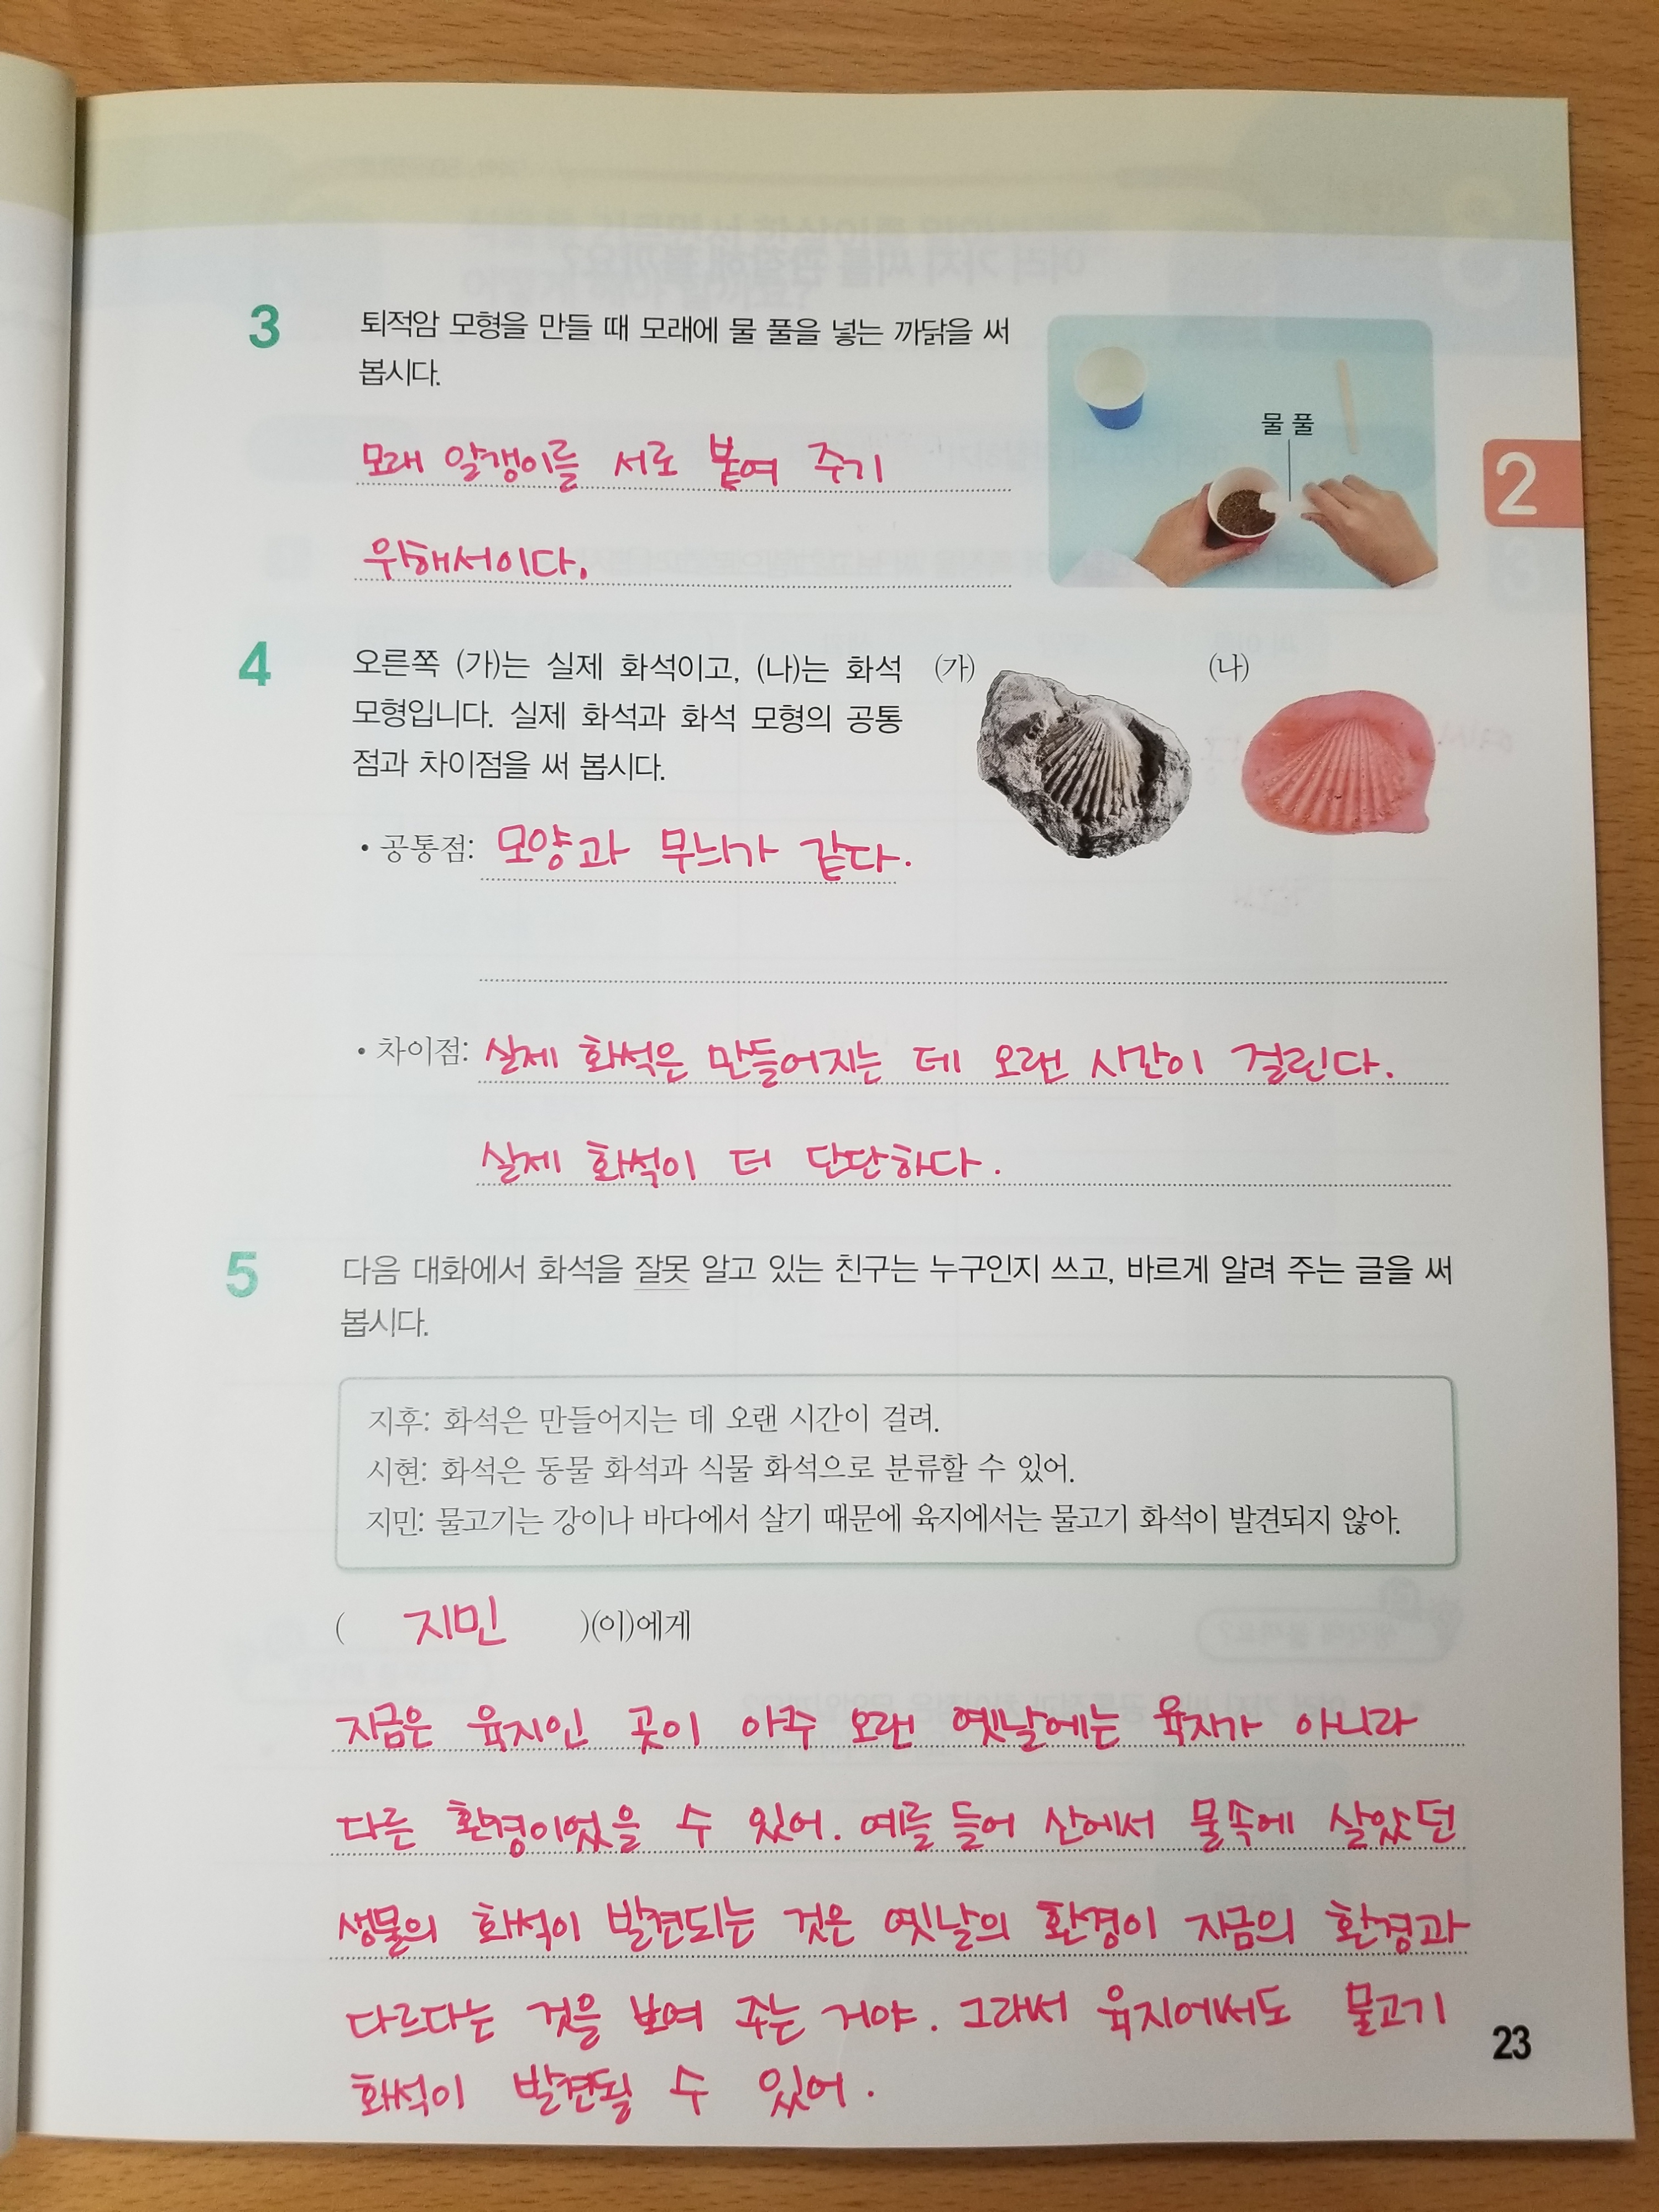 3
퇴적암 모형을 만들 때 모래에 물 풀을 넣는 까닭을 써
봅시다.
물 풀
모래 알갱이를 서로 붙여 주기
위해서이다.
2
4
오른쪽 (가)는 실제 화석이고, (나)는 화석
모형입니다. 실제 화석과 화석 모형의 공통
점과 차이점을 써 봅시다.
(가)
(나)
• 공통점: 모양과 무늬가 같다.
• 차이점: 실제 화석은 만들어지는 데 오랜 시간이 걸린다.
실제 화석이 더 단단하다.
5
다음 대화에서 화석을 잘못 알고 있는 친구는 누구인지 쓰고, 바르게 알려 주는 글을 써
봅시다.
지후: 화석은 만들어지는 데 오랜 시간이 걸려.
시현: 화석은 동물 화석과 식물 화석으로 분류할 수 있어.
지민: 물고기는 강이나 바다에서 살기 때문에 육지에서는 물고기 화석이 발견되지 않아.
( 지민 )(이)에게
지금은 육지인 곳이 아주 오랜 옛날에는 육지가 아니라
다른 환경이었을 수 있어. 예를 들어 산에서 물속에 살았던
생물의 화석이 발견되는 것은 옛날의 환경이 지금의 환경과
다르다는 것을 보여 주는 거야. 그래서 육지에서도 물고기
화석이 발견될 수 있어.
23